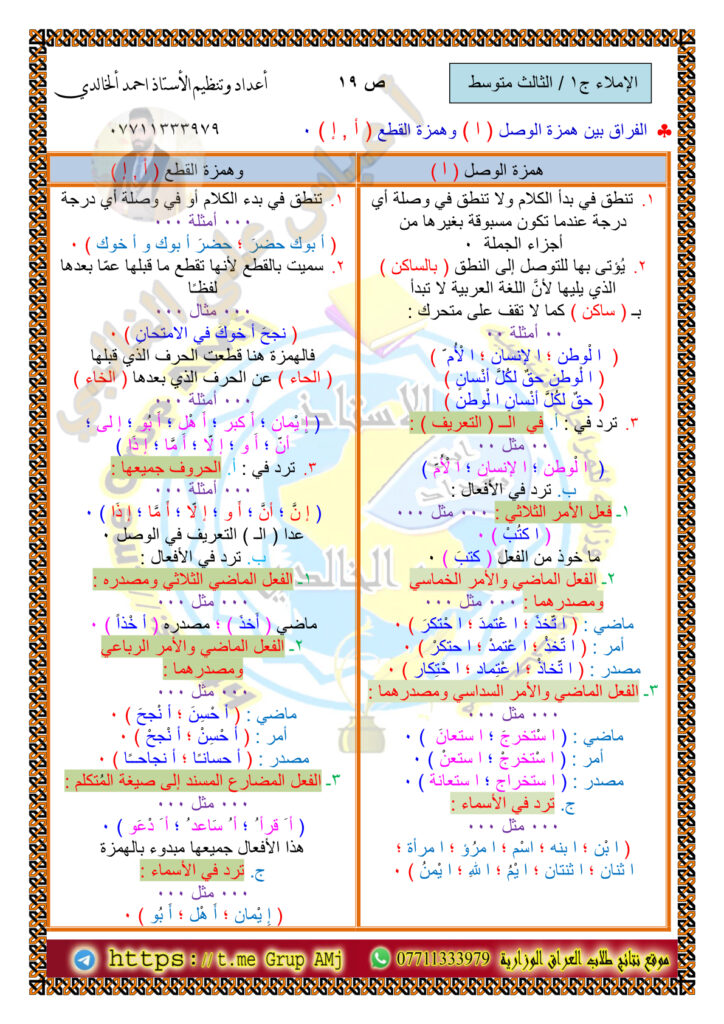 الإملاء ج١ / الثالث متوسط
ص ١٩
أعداد وتنظيم الأستاذ احمد الخالدي
♣ الفراق بين همزة الوصل ( ا ) وهمزة القطع ( أ , إ ) ٠
٠٧٧١١٣٣٣٩٧٩
همزة الوصل ( ا )
١. تنطق في بدأ الكلام ولا تنطق في وصلة أي
درجة عندما تكون مسبوقة بغيرها من
أجزاء الجملة ٠
٢. يُؤتى بها للتوصل إلى النطق ( بالساكن )
الذي يليها لأنَّ اللغة العربية لا تبدأ
بـ ( ساكن ) كما لا تقف على متحرك :
٠٠ أمثلة ٠٠
( ا لْوطن ؛ ا لإنسان ؛ ا لْأمّ )
( ا لْوطن حقٌ لكُلَّ أنْسانٍ )
( حقٌ لكُلَّ أنْسانٍ ا لْوطنُ )
٣. ترد في : أ. في الــ ( التعريف ) :
٠٠ مثل ٠٠
( ا لْوطن ؛ ا لإنسان ؛ ا لْأمّ )
ب. ترد في الأفعال :
١ـ فعل الأمر الثلاثي : ٠٠٠ مثل ٠٠٠
( ا كتُبْ ) ٠
ما خوذ من الفعل ( كتبَ ) ٠
٢ـ الفعل الماضي والأمر الخماسي
ومصدرهما : ٠٠٠ مثل ٠٠٠
ماضي : ( ا تّخذَ ؛ ا عْتمدَ ؛ ا حْتكرَ ) ٠
أمر : ( ا تّخذْ ؛ ا عْتمدْ ؛ ا حتكرْ ) ٠
مصدر : ( ا تّخاذْ ؛ ا عْتِماد ؛ ا حْتِكار ) ٠
٣ـ الفعل الماضي والأمر السداسي ومصدرهما :
٠٠٠ مثل ٠٠٠
ماضي : ( ا ستخرجَ ؛ ا ستعانَ ) ٠
أمر : ( ا سْتخرجْ ؛ ا ستعنْ ) ٠
مصدر : ( ا ستخراج ؛ ا ستعانة ) ٠
ج. ترد في الأسماء :
٠٠٠ مثل ٠٠٠
( ا بْن ؛ ا بنه ؛ اسْم ؛ ا مرُؤ ؛ ا مرأة ؛
ا ثنان ؛ ا ثنتان ؛ ا يْمُ ؛ ا للهِ ؛ ا يْمنُ ) ٠
وهمزة القطع ( أ , إ )
١. تنطق في بدء الكلام أو في وصلة أي درجة
٠٠٠ أمثلة ٠٠٠
( أ بوك حضرَ ؛ حضرَ أ بوك و أ خوك ) ٠
٢. سميت بالقطع لأنها تقطع ما قبلها عمّا بعدها
لفظـًا
٠٠٠ مثال ٠٠٠
( نجحَ أ خوكَ في الامتحانِ ) ٠
فالهمزة هنا قطعت الحرف الذي قبلها
( الحاء ) عن الحرف الذي بعدها ( الخاء )
٠٠٠ أمثلة ٠٠٠
( إ يْمان ؛ أ كبر ؛ أ هْل ؛ أ بُو ؛ إ لى ؛
أنّ ؛ أ و ؛ إ لّا ؛ أ مَّا ؛ إ ذَا )
٣. ترد في : أ. الحروف جميعها :
٠٠٠ أمثلة ٠٠٠
( إ نَّ ؛ أنَّ ؛ أ و ؛ إ لّا ؛ أ مَّا ؛ إ ذَا ) ٠
عدا ( الـ ) التعريف في الوصل ٠
ب. ترد في الأفعال :
١ـ الفعل الماضي الثلاثي ومصدره :
٠٠٠ مثل ٠٠٠
ماضي ( أخذَ ) ؛ مصدره ( أ خْذاً ) ٠
٢ـ الفعل الماضي والأمر الرباعي
ومصدرهما :
٠٠٠ مثل ٠٠٠
ماضي : ( أ حسِنَ ؛ أ نْجحَ ) ٠
أمر : ( أ حْسِنْ ؛ أ نْجحْ ) ٠
مصدر : ( أ حسانـًا ؛ أ نجاحـًا ) ٠
٣ـ الفعل المضارع المسند إلى صيغة المُتكلم :
٠٠٠ مثل ٠٠٠
( أ َ قرأ ُ ؛ أ ُ سَاعد ُ ؛ أ َ دْعَو ) ٠
هذا الأفعال جميعها مبدوء بالهمزة
ج. ترد في الأسماء :
٠٠٠ مثل ٠٠٠
( إ يْمان ؛ أ هْل ؛ أ بُو ) ٠
موقع نتائج طلاب العراق الوزارية 07711333979 https://t.me Grup AMj